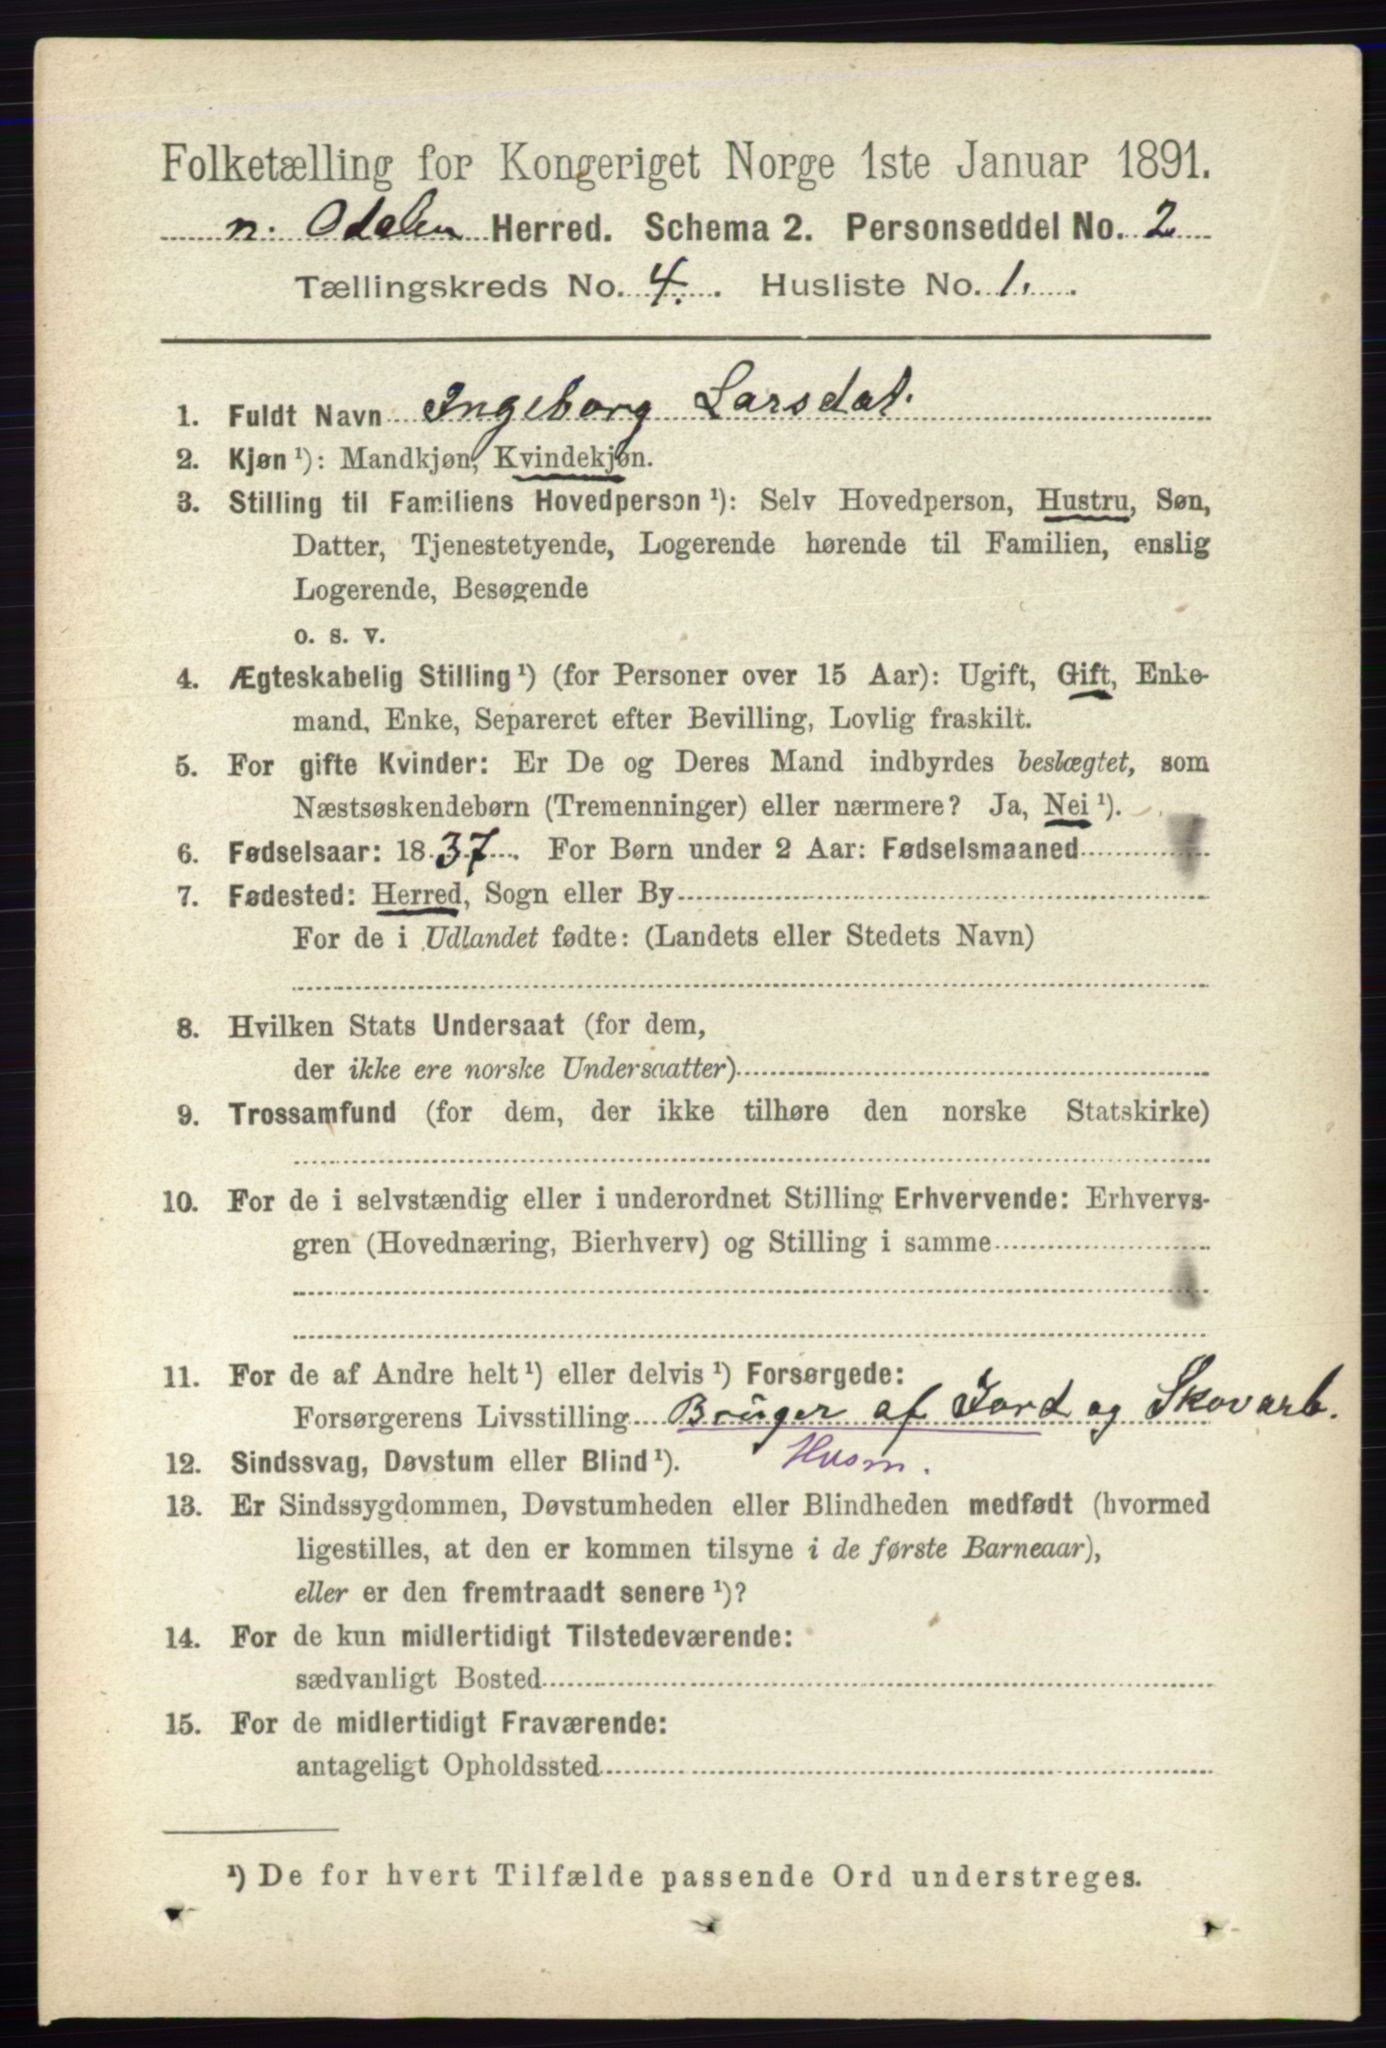 Folketælling for Kongeriget Norge 1ste Januar 1891.
n. Odalen Herred. Schema 2. Personseddel No. 2
Tællingskreds No. 4. Husliste No. 1.
1. Fuldt Navn Ingeborg Larsdat.
2. Kjøn ¹): Mandkjøn, Kvindekjøn.
3. Stilling til Familiens Hovedperson ¹): Selv Hovedperson, Hustru, Søn,
Datter, Tjenestetyende, Logerende hørende til Familien, enslig
Logerende, Besøgende
o. s. v.
4. Ægteskabelig Stilling ¹) (for Personer over 15 Aar): Ugift, Gift, Enke-
mand, Enke, Separeret efter Bevilling, Lovlig fraskilt.
5. For gifte Kvinder: Er De og Deres Mand indbyrdes beslægtet, som
Næstsøskendebørn (Tremenninger) eller nærmere? Ja, Nei ¹).
6. Fødselsaar: 1837. For Børn under 2 Aar: Fødselsmaaned
7. Fødested: Herred, Sogn eller By
For de i Udlandet fødte: (Landets eller Stedets Navn)
8. Hvilken Stats Undersaat (for dem,
der ikke ere norske Undersaatter)
9. Trossamfund (for dem, der ikke tilhøre den norske Statskirke)
10. For de i selvstændig eller i underordnet Stilling Erhvervende: Erhvervs-
gren (Hovednæring, Bierhverv) og Stilling i samme
11. For de af Andre helt ¹) eller delvis ¹) Forsørgede:
Forsørgerens Livsstilling Brüger af Jord og Skovarb.
12. Sindssvag, Døvstum eller Blind ¹). Husm.
13. Er Sindssygdommen, Døvstumheden eller Blindheden medfødt (hvormed
ligestilles, at den er kommen tilsyne i de første Barneaar),
eller er den fremtraadt senere ¹)?
14. For de kun midlertidigt Tilstedeværende:
sædvanligt Bosted
15. For de midlertidigt Fraværende:
antageligt Opholdssted
¹) De for hvert Tilfælde passende Ord understreges.